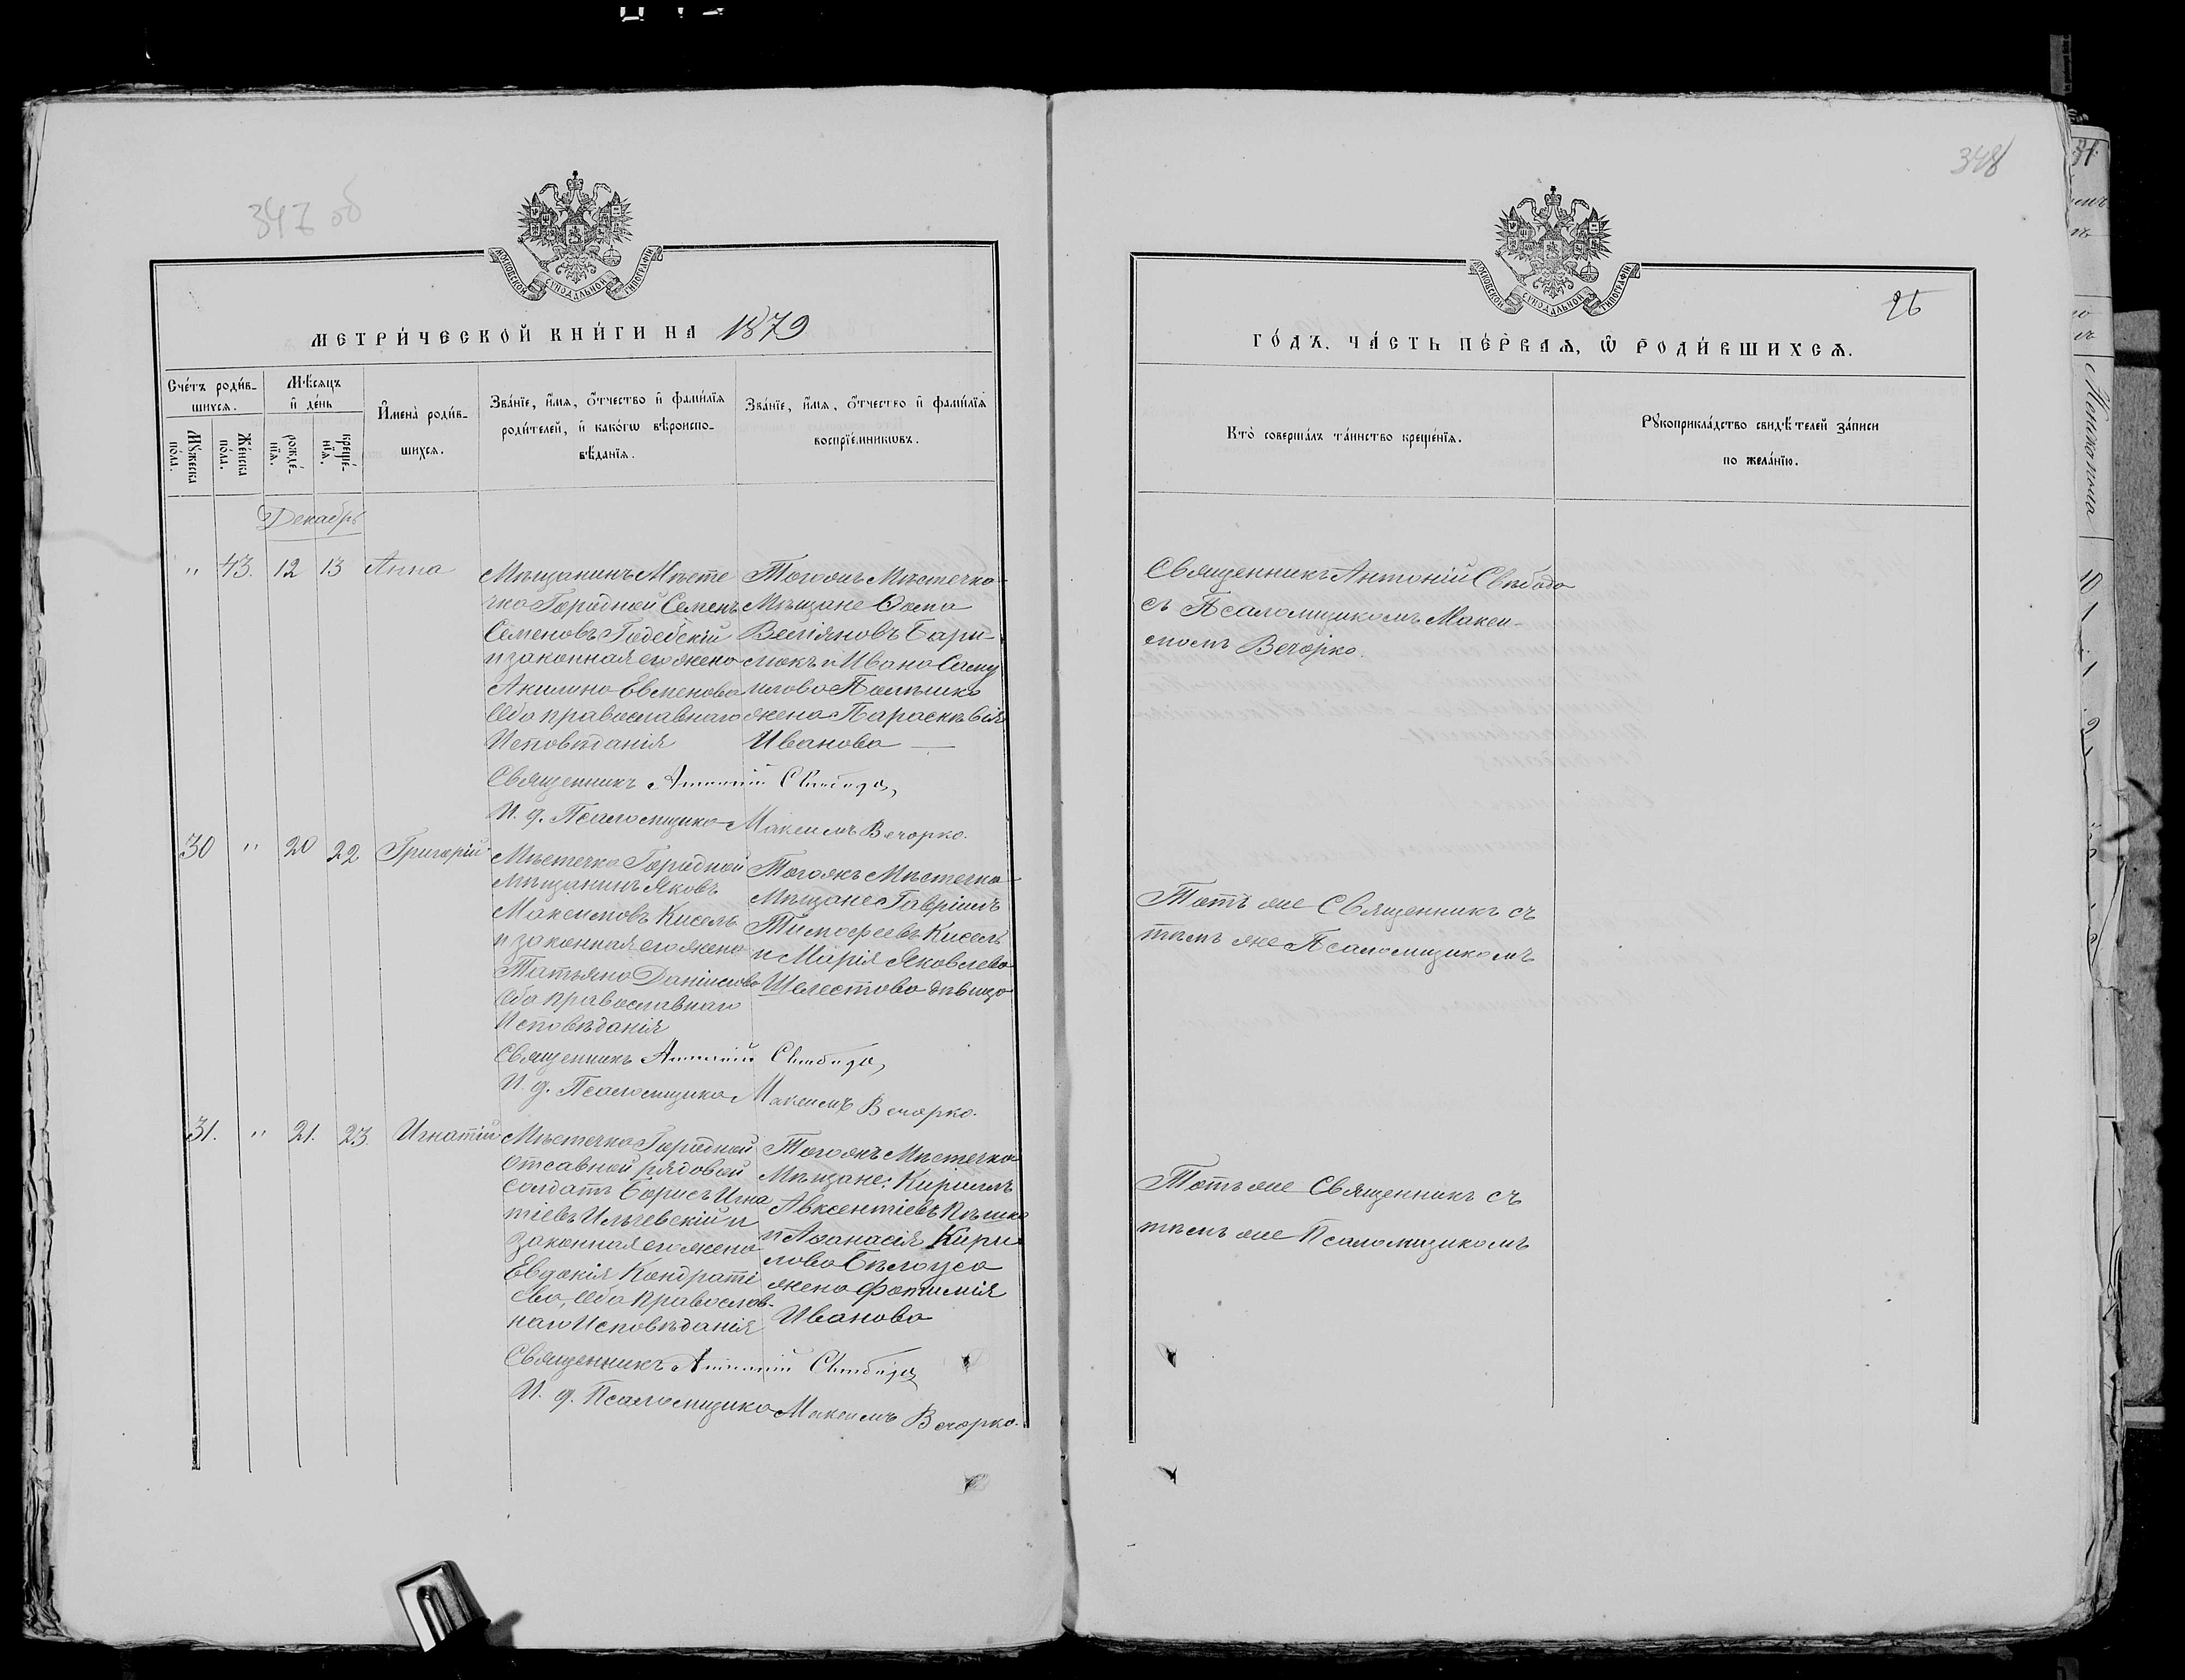 347 об
МОСКОВСКОЙ СѴНОДАЛЬНОЙ ТИПОГРАФІИ
МЕТРИ́ЧЕСКОЙ КНИ́ГИ НА 1879
Сче́тъ роди́в-
шихсѧ.
Мѣ́сѧцъ
и҆ де́нь
Мꙋ́жеска
по́ла.
Же́нска
по́ла.
рожде́-
нїѧ.
креще́-
нїѧ.
И҆мена̀ роди́в-
шихсѧ.
Зва́нїе, и҆́мѧ, ѻ҆́тчество и҆ фами́лїѧ
роди́телей, и҆ како́гѡ вѣроиспо-
вѣ́данїѧ.
Зва́нїе, и҆́мѧ, ѻ҆́тчество и҆ фами́лїѧ
воспрїе́мникѡвъ.
Декабрь
" 43. 12 13 Анна
Мѣщанинъ Мѣсте
чка Городной Семенъ
Семеновъ Годебскій
и законная его жена
Акилина Евменова
Оба православнаго
Исповѣданія
Тогожъ Мѣстечка
Мѣщане Ѳома
Бари-
мокъ и Ивана Саму
илова жена Параскевія
Иванова
Священникъ Антоній Свобода,
И. д. Псаломщика Максимъ Вечорко.
30 " 20 22 Григорій
Мѣстечка Городной
Мѣщанинъ Яковъ
Максимовъ Кисель
и законная его жена
Татьяна Данилова
Оба православнаго
Исповѣданія
Тогожъ Мѣстечка
Мѣщане Гавріилъ
Тимофеевъ Кисель
и Марія Яковлева
Шелестова дѣвица
Священникъ Антоній Свобода,
И. д. Псаломщика Максимъ Вечорко.
31. " 21. 23. Игнатій
Мѣстечка Городной
отсавной рядовой
солдатъ Борисъ Игна
тіевъ Ильчевскій и
законная его жена
Евдокія Кондраті
ева, Оба православ-
наго Исповѣданія
Тогожъ Мѣстечка
Мѣщане: Кириллъ
Авксентіевъ
и Аѳанасія Кири
лова Бѣлоуса
жена
Иванова
Священникъ Антоній Свобода
И. д. Псаломщика Максимъ Вечорко.
348
МОСКОВСКОЙ СѴНОДАЛЬНОЙ ТИПОГРАФІИ
26
ГО́ДЪ. ЧА́СТЬ ПЕ́РВАѦ, Ѡ҆ РОДИ́ВШИХСѦ.
Кто̀ соверша́лъ та́инство креще́нїѧ.
Рꙋкоприкла́дство свидѣ́телей за́писи
по жела́нїю.
Священникъ Антоній Свобода
съ Псаломщикомъ Макси-
момъ Вечорко.
Тотъ же Священникъ съ
тѣмъ же Псаломщикомъ
Тотъ же Священникъ съ
тѣмъ же Псаломщикомъ